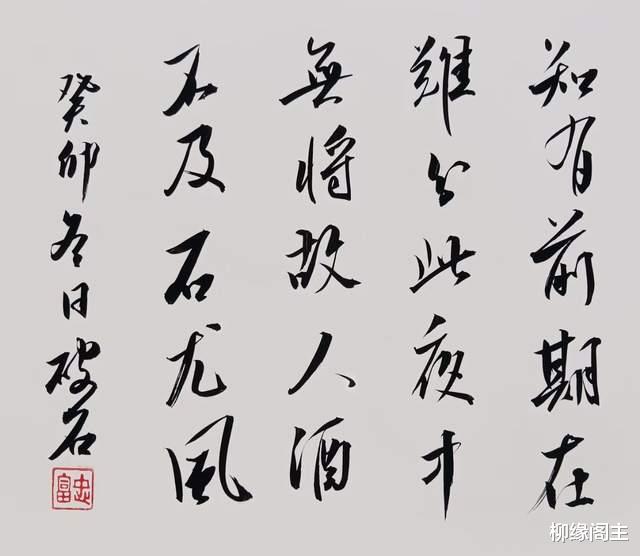 知有前期在
難分此夜中
無將故人酒
不及石尤風
癸卯冬日破石
忠富
柳缘阁主